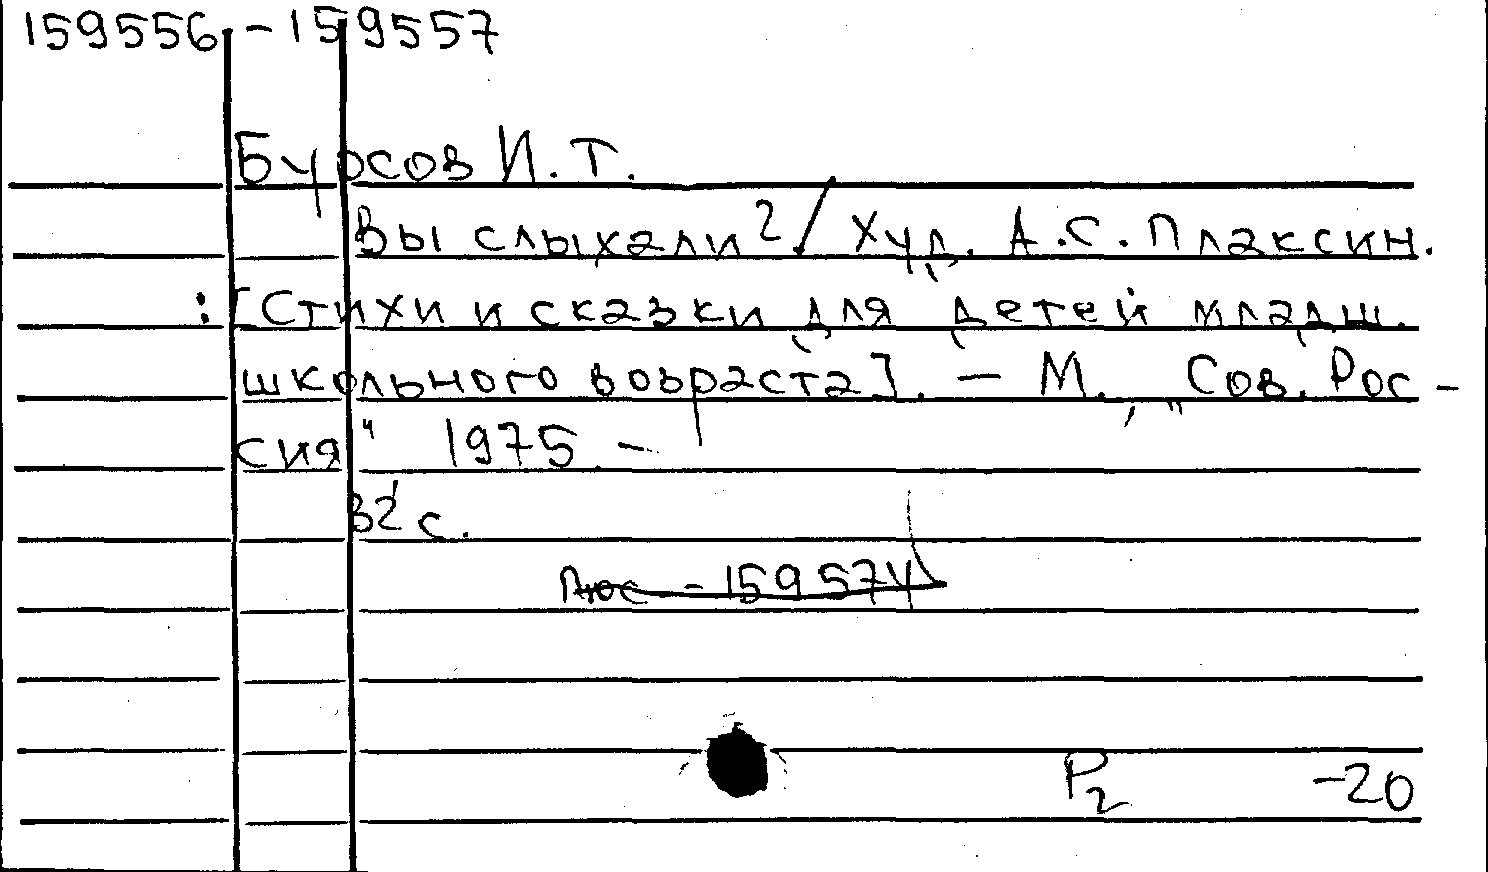 159556 - 159557
Бурсов И.Т.
Вы слыхали?/ Худ. А.С. Плаксин.
: [Стихи и сказки для детей младш.
школьного возраста]. — М., „Сов. Рос-
сия" 1975. -
32 с.
159574
Р2 -20